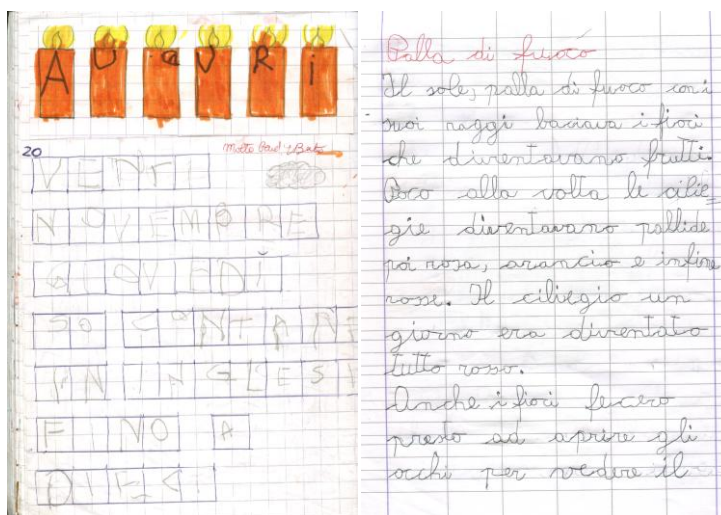 AUGURI
20
VENTI
NOVEMBRE
GIOVEDÌ
SO CONTA
IN INGLESE
FINO A
DIECI
Palla di fuoco
Il sole, palla di fuoco con i
suoi raggi baciava i fiori
che diventavano frutti.
Poco alla volta le cilie=
gie diventavano pallide
poi rosa, arancio e infine
rosse. Il ciliegio un
giorno era diventato
tutto rosso.
Anche i fiori fecero
presto ad aprire gli
occhi per vedere il